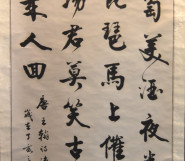 萄美酒夜光
琵琶馬上催
場君莫笑古
来人回
唐王翰詩
歲